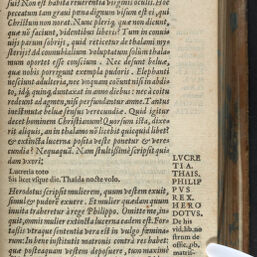 suis? Non est habita reuerentia virginis oculis. Hoc
peccatum vel graui pœna dignum visum est ei, qui
Christum non norat. Nunc pleriq; quæ non dicunt,
quæ nō faciunt, videntibus liberis? Tum in conui
uijs parum sobrijs, quid reticetur de thalami my=
sterijs? Ad connubialium voluptatum solum thala=
mum oportet esse conscium. Nec desunt beluæ,
quæ nobis porrigunt exempla pudoris. Elephanti
nesciunt adulteria, nec vnquam coëunt nisi in abdi=
to, idq; quinquennio
redeunt ad agmen, nisi perfundantur amne. Tantus
inest mutæ beluæ sensus verecundiæ. Quid igitur
decet hominem Christianum? Quorsum ista, dixe=
rit aliquis, an in thalamo nō licebit quicquid libet?
& extincta lucerna posita veste ponetur & vere=
cundia? Nequaquā. Nam stultissime scripsit qui=
dam vxori:
Lucretia toto
Sis licet vsque die. Thaida nocte volo.
Herodotus scripsit mulierem, quum vestem exuit,
simul & pudorē exuere. Et mulier quædam quum
inuita traheretur à rege Philippo. Omitte me, in=
quit, omnis mulier extincta lucerna eadem est. For=
tassis vtraque sententia vera est in vulgo fœmina=
rum: In bene institutis matronis contrà res habet:
quæ posteaquam vestem deposuere, tum maximè
LVCRE
TIA.
THAIS.
PHILIP
PVS
REX.
HERO
DOTVS.
De his
vid. lib. no
strum de
offic.
matri=